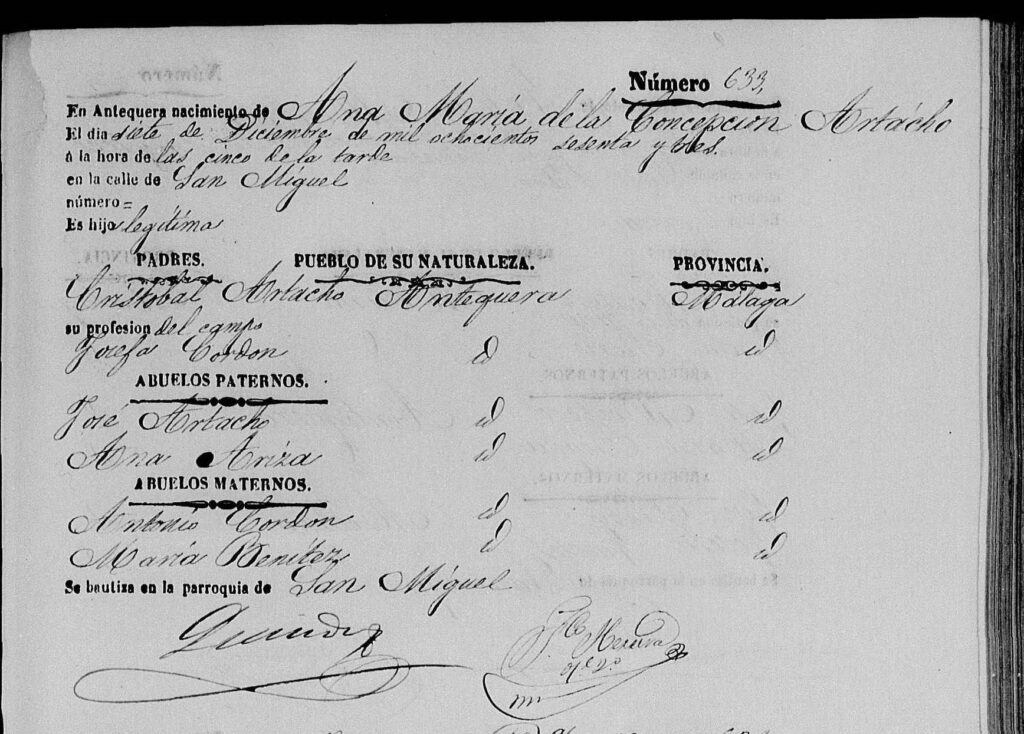 Número 633.
En Antequera nacimiento de Ana María de la Concepcion Artacho
El dia siete de Diciembre de mil ochocientos sesenta y tres.
á la hora de las cinco de la tarde
en la calle de San Miguel
número =
Es hijo legítima
PADRES. PUEBLO DE SU NATURALEZA. PROVINCIA.
Cristobal Artacho Antequera Málaga
su profesion del campo
Josefa Cordon id id
ABUELOS PATERNOS.
José Artacho id id
Ana Ariza id id
ABUELOS MATERNOS.
Antonio Cordon id id
María Benítez id id
Se bautiza en la parroquia de San Miguel